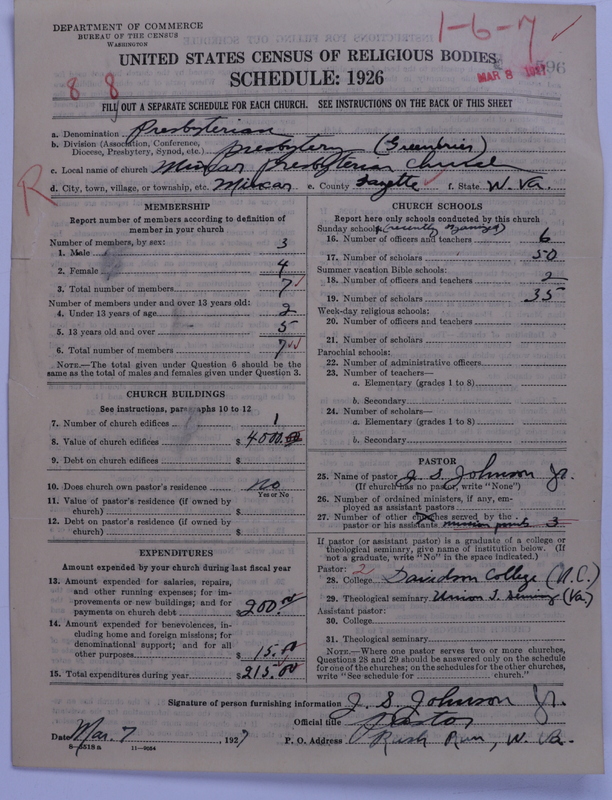 1-6-7 ✓
DEPARTMENT OF COMMERCE
BUREAU OF THE CENSUS
WASHINGTON
UNITED STATES CENSUS OF RELIGIOUS BODIES
SCHEDULE: 1926
MAR 8 1927
596
8 8
FILL OUT A SEPARATE SCHEDULE FOR EACH CHURCH. SEE INSTRUCTIONS ON THE BACK OF THIS SHEET
a. Denomination Presbyterian
b. Division (Association, Conference, Diocese, Presbytery, Synod, etc.) Presbytery (Greenbrier)
c. Local name of church Mincar Presbyterian Church
R
d. City, town, village, or township, etc. Mincar e. County Fayette ✓ f. State W. Va.
MEMBERSHIP
Report number of members according to definition of member in your church
Number of members, by sex:
1. Male 3
2. Female 4
3. Total number of members 7 ✓
Number of members under and over 13 years old:
4. Under 13 years of age 2
5. 13 years old and over 5
6. Total number of members 7 ✓✓
NOTE.—The total given under Question 6 should be the same as the total of males and females given under Question 3.
CHURCH BUILDINGS
See instructions, paragraphs 10 to 12
7. Number of church edifices 1
8. Value of church edifices $ 4000.00
9. Debt on church edifices $
10. Does church own pastor's residence No
Yes or No
11. Value of pastor's residence (if owned by church) $
12. Debt on pastor's residence (if owned by church) $
EXPENDITURES
Amount expended by your church during last fiscal year
13. Amount expended for salaries, repairs, and other running expenses; for improvements or new buildings; and for payments on church debt $ 200.00
14. Amount expended for benevolences, including home and foreign missions; for denominational support; and for all other purposes $ 15.00
15. Total expenditures during year $ 215.00
CHURCH SCHOOLS
Report here only schools conducted by this church
Sunday schools: (recently organized)
16. Number of officers and teachers 6
17. Number of scholars 50
Summer vacation Bible schools:
18. Number of officers and teachers 2
19. Number of scholars 35
Week-day religious schools:
20. Number of officers and teachers
21. Number of scholars
Parochial schools:
22. Number of administrative officers
23. Number of teachers—
a. Elementary (grades 1 to 8)
b. Secondary
24. Number of scholars—
a. Elementary (grades 1 to 8)
b. Secondary
PASTOR
25. Name of pastor J. S. Johnson Jr.
(If church has no pastor, write "None")
26. Number of ordained ministers, if any, employed as assistant pastors
27. Number of other churches served by the pastor or his assistants mission points 3
If pastor (or assistant pastor) is a graduate of a college or theological seminary, give name of institution below. (If not a graduate, write "No" in the space indicated.)
Pastor: 2
28. College Davidson College (N.C.)
29. Theological seminary Union T. Seminary (Va.)
Assistant pastor:
30. College
31. Theological seminary
NOTE.—Where one pastor serves two or more churches, Questions 28 and 29 should be answered only on the schedule for one of the churches; on the schedules for the other churches, write "See schedule for church."
Signature of person furnishing information J. S. Johnson Jr.
Official title Pastor
Date Mar. 7, 1927 P. O. Address Rush Run, W. Va.
8-5518 a 11-9024